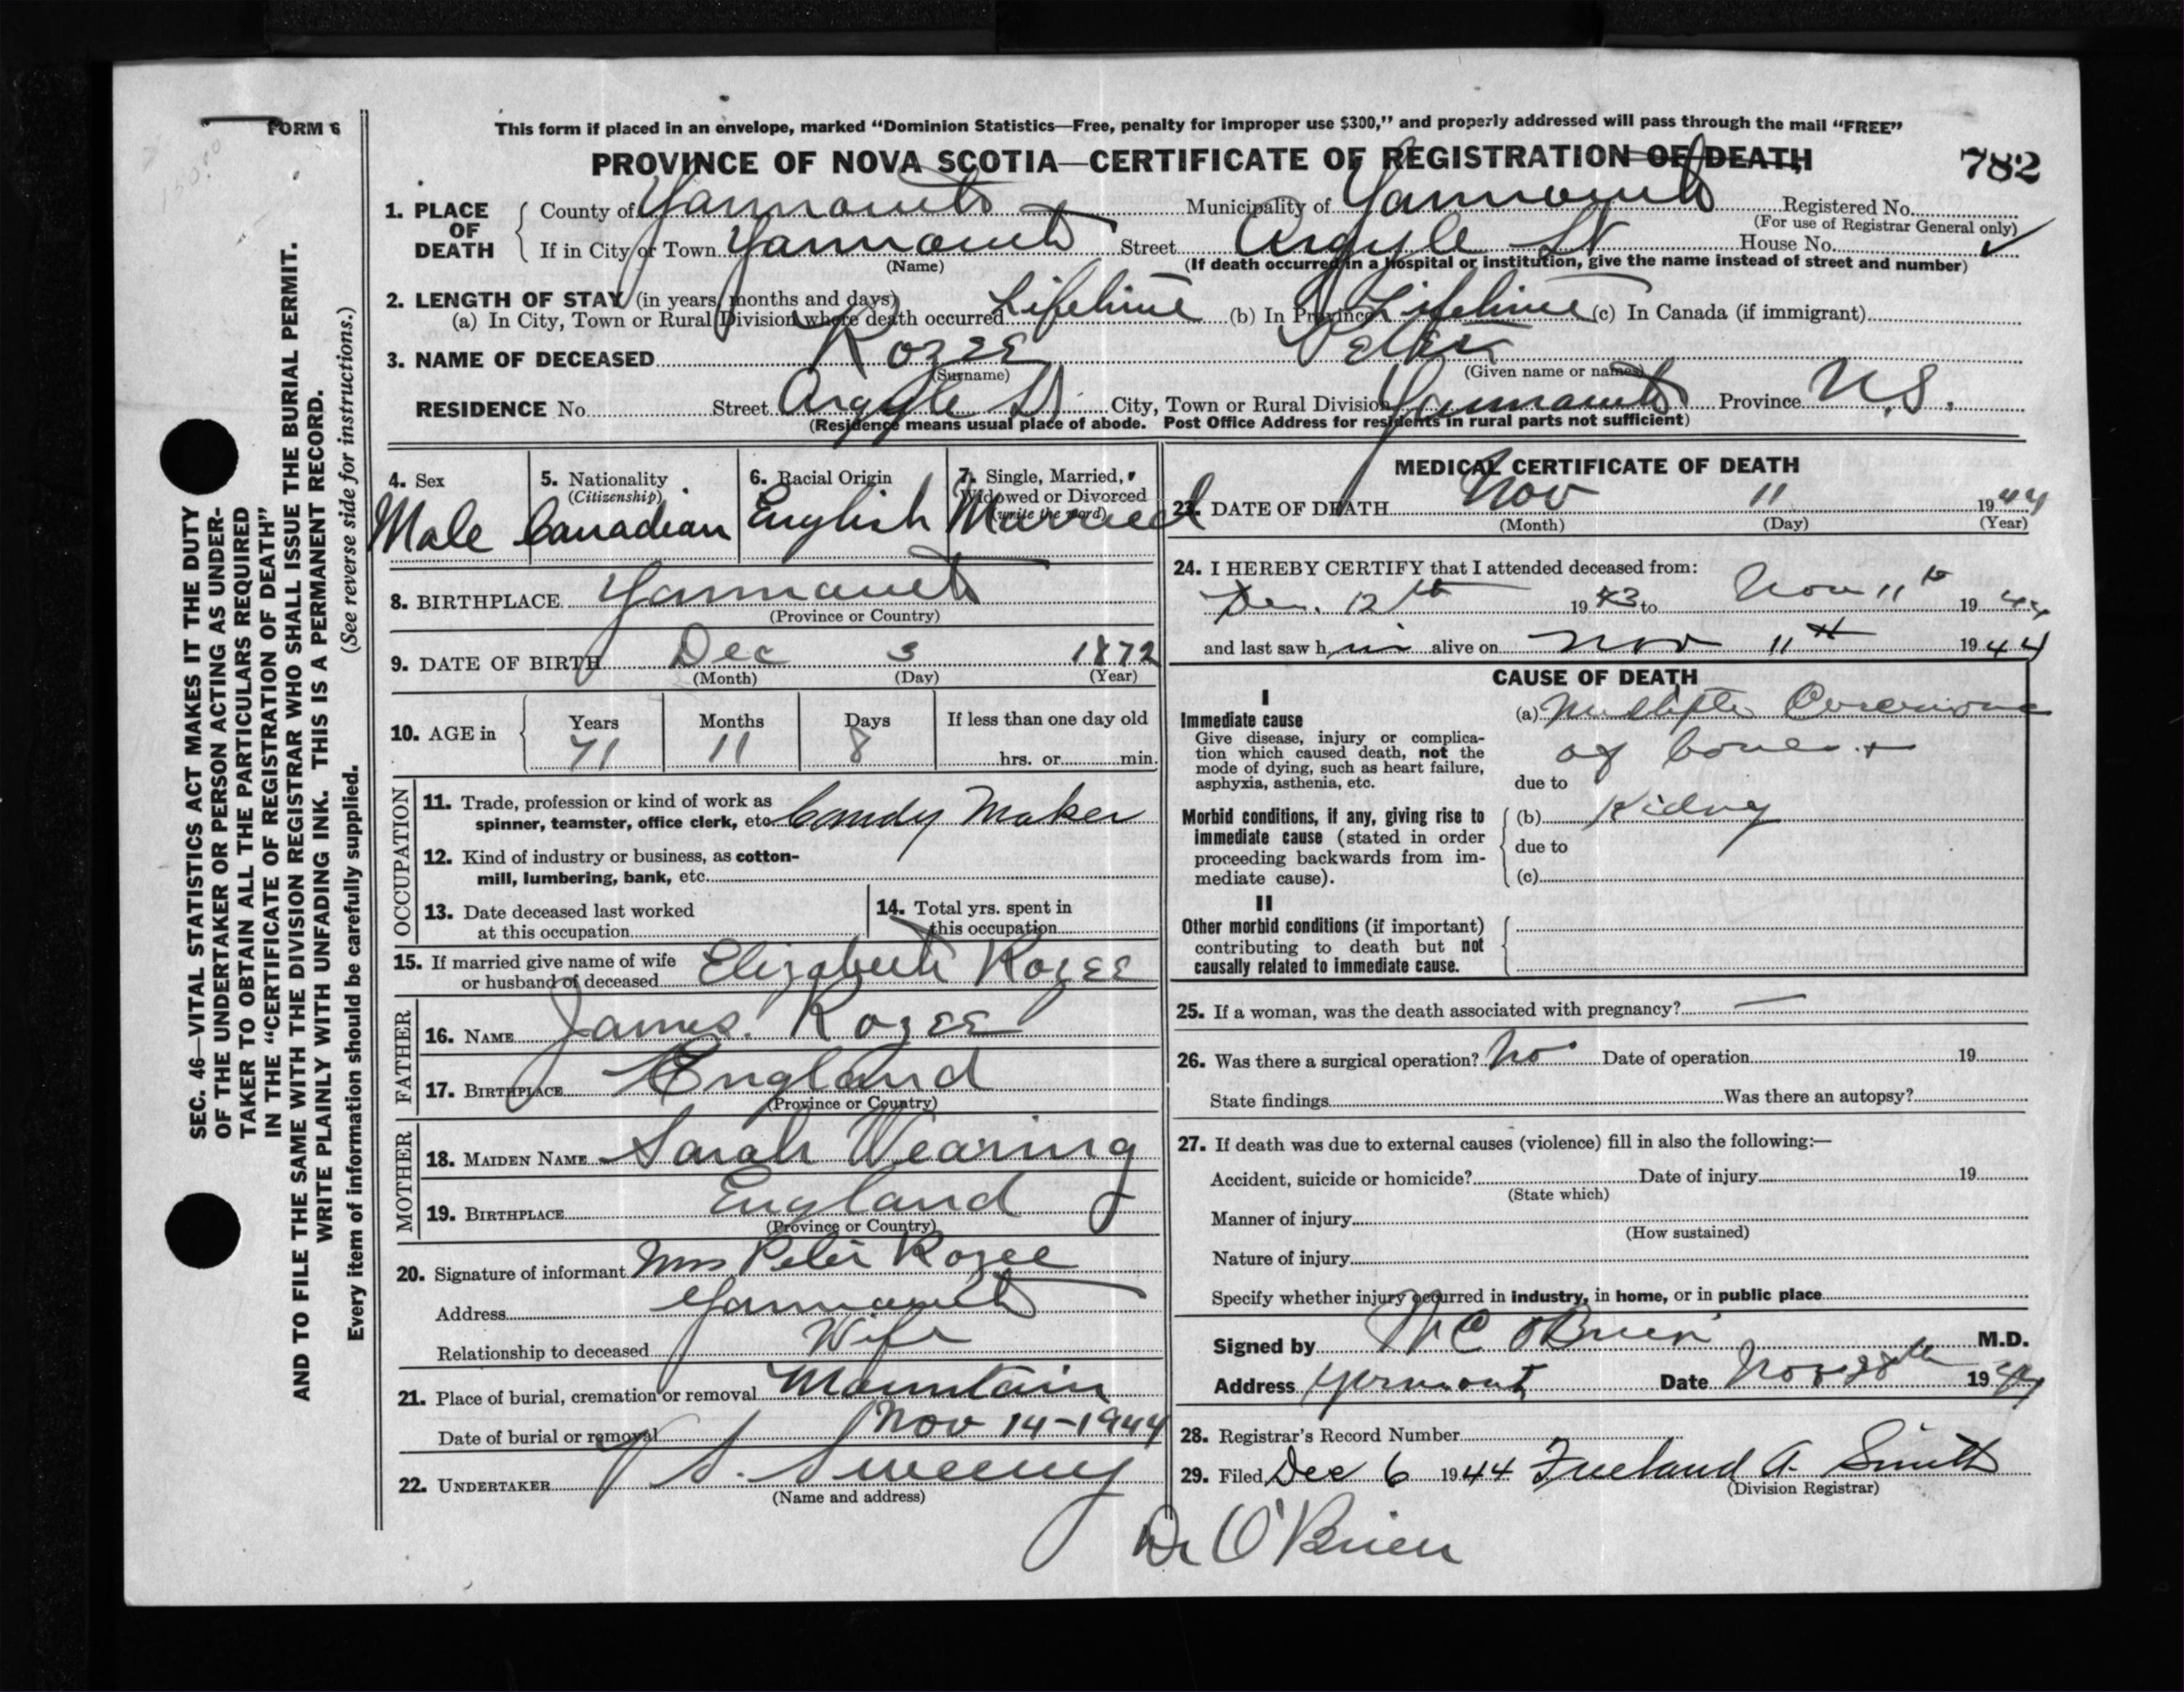 FORM 6
This form if placed in an envelope, marked “Dominion Statistics—Free, penalty for improper use $300,” and properly addressed will pass through the mail “FREE”
PROVINCE OF NOVA SCOTIA—CERTIFICATE OF REGISTRATION OF DEATH
782
1. PLACE OF DEATH County of Yarmouth Municipality of Yarmouth Registered No.
(For use of Registrar General only)
If in City or Town Yarmouth Street Argyle St House No.
(Name) (If death occurred in a hospital or institution, give the name instead of street and number)
2. LENGTH OF STAY (in years, months and days)
(a) In City, Town or Rural Division where death occurred Lifetime (b) In Province Lifetime (c) In Canada (if immigrant)
3. NAME OF DECEASED Rozee Peter
(Surname) (Given name or names)
RESIDENCE No. Street Argyle St. City, Town or Rural Division Yarmouth Province N.S.
(Residence means usual place of abode. Post Office Address for residents in rural parts not sufficient)
4. Sex
Male
5. Nationality
(Citizenship)
Canadian
6. Racial Origin
English
7. Single, Married,
Widowed or Divorced
(write the word)
Married
8. BIRTHPLACE Yarmouth
(Province or Country)
9. DATE OF BIRTH Dec 3 1872
(Month) (Day) (Year)
10. AGE in Years Months Days If less than one day old
71 11 8 hrs. or min.
OCCUPATION
11. Trade, profession or kind of work as
spinner, teamster, office clerk, etc. Candy Maker
12. Kind of industry or business, as cotton-
mill, lumbering, bank, etc.
13. Date deceased last worked
at this occupation
14. Total yrs. spent in
this occupation
15. If married give name of wife
or husband of deceased Elizabeth Rozee
FATHER
16. NAME James. Rozee
17. BIRTHPLACE England
(Province or Country)
MOTHER
18. MAIDEN NAME Sarah Wearing
19. BIRTHPLACE England
(Province or Country)
20. Signature of informant Mrs Peter Rozee
Address Yarmouth
Relationship to deceased Wife
21. Place of burial, cremation or removal Mountain
Date of burial or removal Nov 14-1944
22. UNDERTAKER V S. Sweeny
(Name and address)
MEDICAL CERTIFICATE OF DEATH
23. DATE OF DEATH Nov 11 1944
(Month) (Day) (Year)
24. I HEREBY CERTIFY that I attended deceased from:
12th 1943 to Nov 11th 1944
and last saw him alive on Nov 11th 1944
CAUSE OF DEATH
I
Immediate cause
Give disease, injury or complica-
tion which caused death, not the
mode of dying, such as heart failure,
asphyxia, asthenia, etc.
(a) Multiple
of bones +
due to
Morbid conditions, if any, giving rise to
immediate cause (stated in order
proceeding backwards from im-
mediate cause).
(b) Kidney
due to
(c)
II
Other morbid conditions (if important)
contributing to death but not
causally related to immediate cause.
25. If a woman, was the death associated with pregnancy? —
26. Was there a surgical operation? No Date of operation 19
State findings Was there an autopsy?
27. If death was due to external causes (violence) fill in also the following:—
Accident, suicide or homicide? Date of injury 19
(State which)
Manner of injury
(How sustained)
Nature of injury
Specify whether injury occurred in industry, in home, or in public place
Signed by O'Brien M.D.
Address Yarmouth Date Nov 1944
28. Registrar's Record Number
29. Filed Dec 6 1944 Freeland A. Smith
(Division Registrar)
Dr O'Brien
SEC. 46—VITAL STATISTICS ACT MAKES IT THE DUTY
OF THE UNDERTAKER OR PERSON ACTING AS UNDER-
TAKER TO OBTAIN ALL THE PARTICULARS REQUIRED
IN THE “CERTIFICATE OF REGISTRATION OF DEATH”
AND TO FILE THE SAME WITH THE DIVISION REGISTRAR WHO SHALL ISSUE THE BURIAL PERMIT.
WRITE PLAINLY WITH UNFADING INK. THIS IS A PERMANENT RECORD.
Every item of information should be carefully supplied. (See reverse side for instructions.)